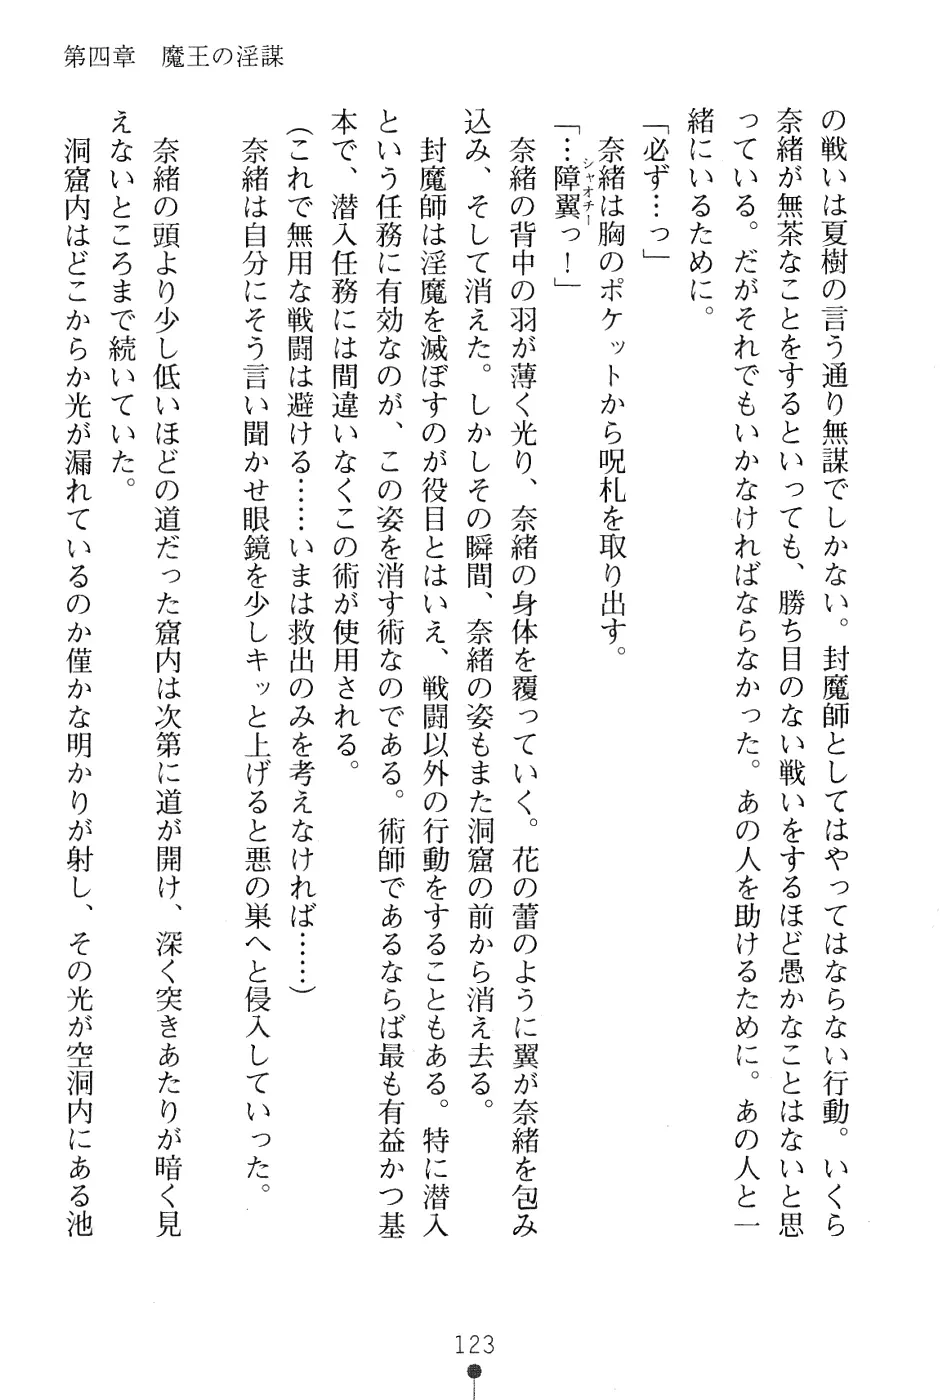 第四章　魔王の淫謀
の戦いは夏樹の言う通り無謀でしかない。封魔師としてはやってはならない行動。いくら
奈緒が無茶なことをするといっても、勝ち目のない戦いをするほど愚かなことはないと思
っている。だがそれでもいかなければならなかった。あの人を助けるために。あの人と一
緒にいるために。
「必ず…っ」
　奈緒は胸のポケットから呪札を取り出す。
シャオチー
「…障翼っ！」
　奈緒の背中の羽が薄く光り、奈緒の身体を覆っていく。花の蕾のように翼が奈緒を包み
込み、そして消えた。しかしその瞬間、奈緒の姿もまた洞窟の前から消え去る。
　封魔師は淫魔を滅ぼすのが役目とはいえ、戦闘以外の行動をすることもある。特に潜入
という任務に有効なのが、この姿を消す術なのである。術師であるならば最も有益かつ基
本で、潜入任務には間違いなくこの術が使用される。
（これで無用な戦闘は避ける……いまは救出のみを考えなければ……）
　奈緒は自分にそう言い聞かせ眼鏡を少しキッと上げると悪の巣へと侵入していった。
　奈緒の頭より少し低いほどの道だった窟内は次第に道が開け、深く突きあたりが暗く見
えないところまで続いていた。
　洞窟内はどこからか光が漏れているのか僅かな明かりが射し、その光が空洞内にある池
123